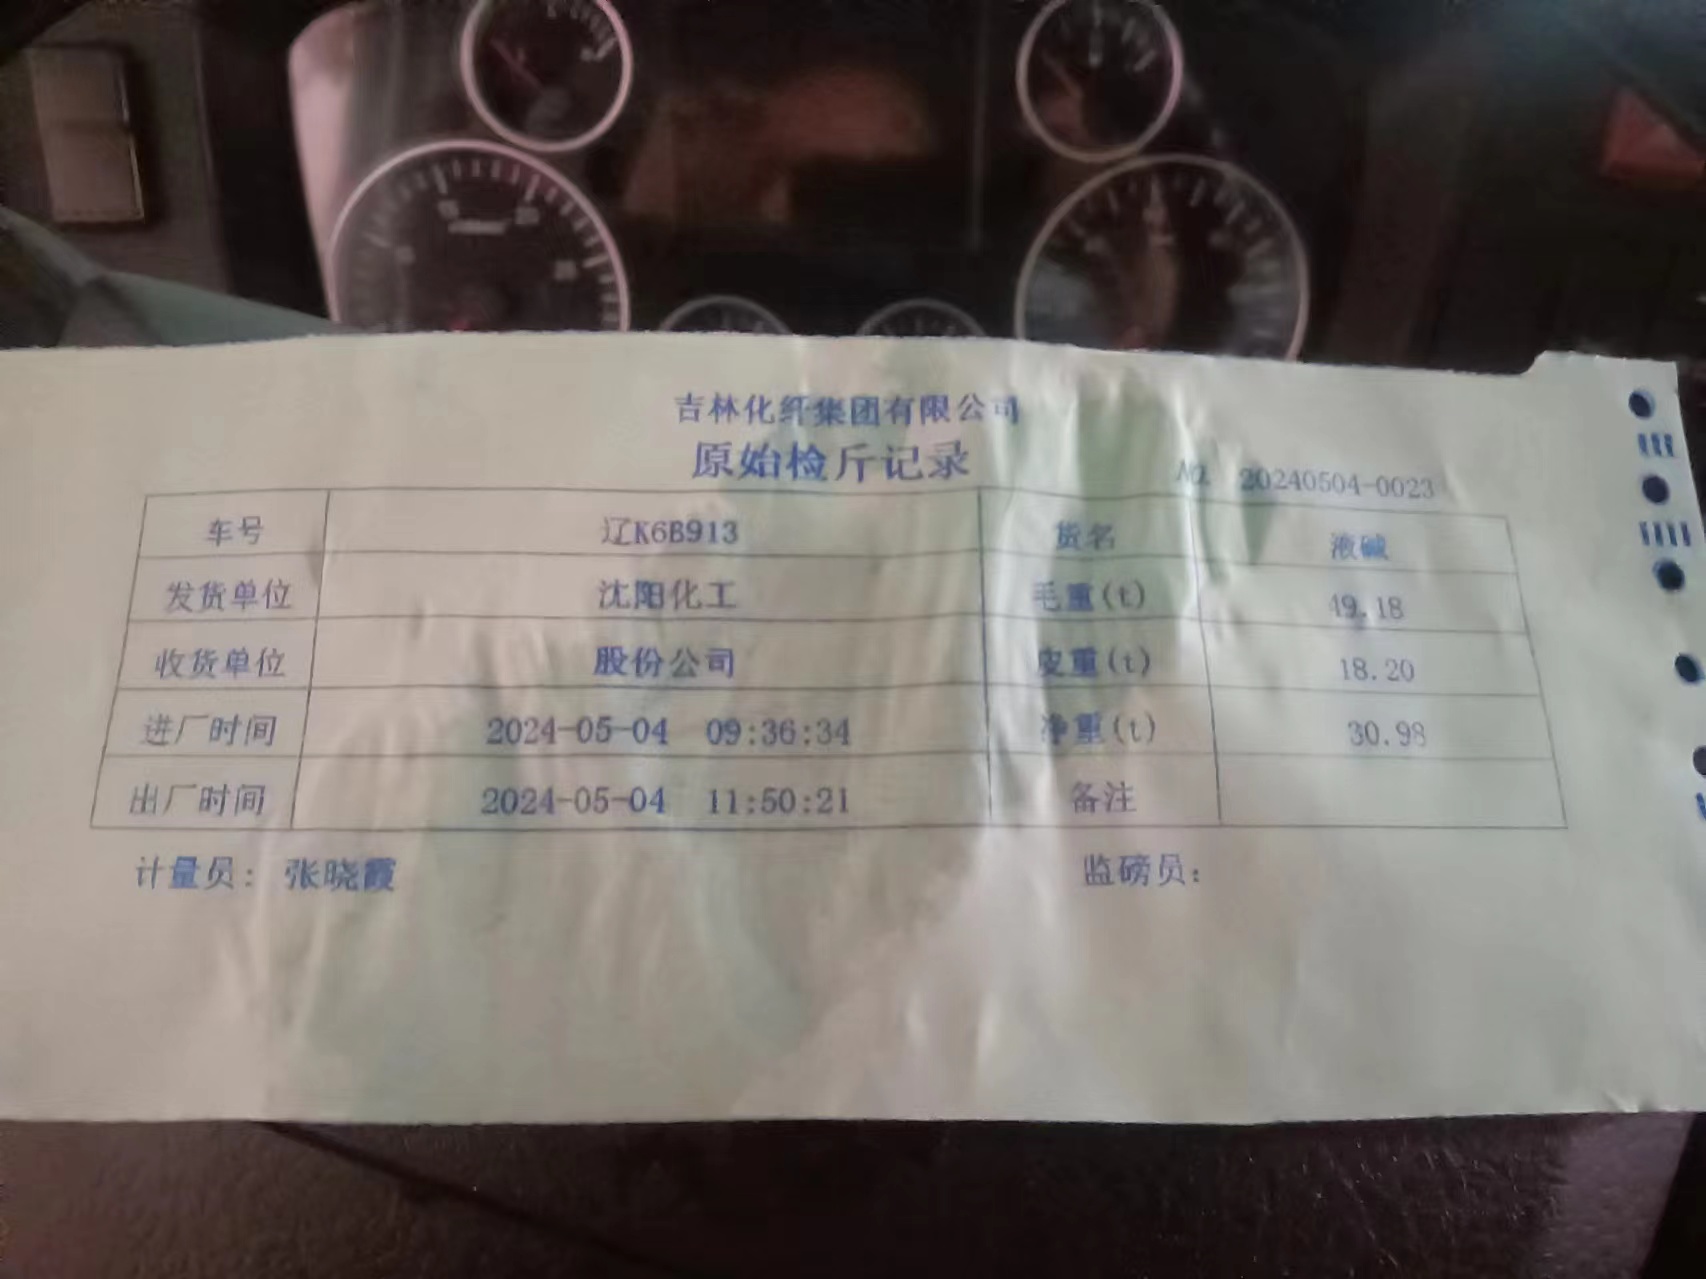 吉林化纤集团有限公司
原始检斤记录
NO. 20240504-0023
车号 辽K6B913 货名 液碱
发货单位 沈阳化工 毛重(t) 49.18
收货单位 股份公司 皮重(t) 18.20
进厂时间 2024-05-04 09:36:34 净重(t) 30.98
出厂时间 2024-05-04 11:50:21 备注
计量员: 张晓霞 监磅员: